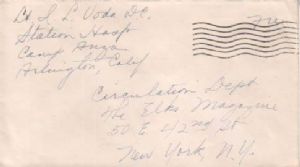 Lt. I. L. Voda D.C.
Station Hosp
Camp Anza
Arlington, Calif
Free
Circulation Dept
The Elks Magazine
50 E. 42nd St
New York, N.Y.